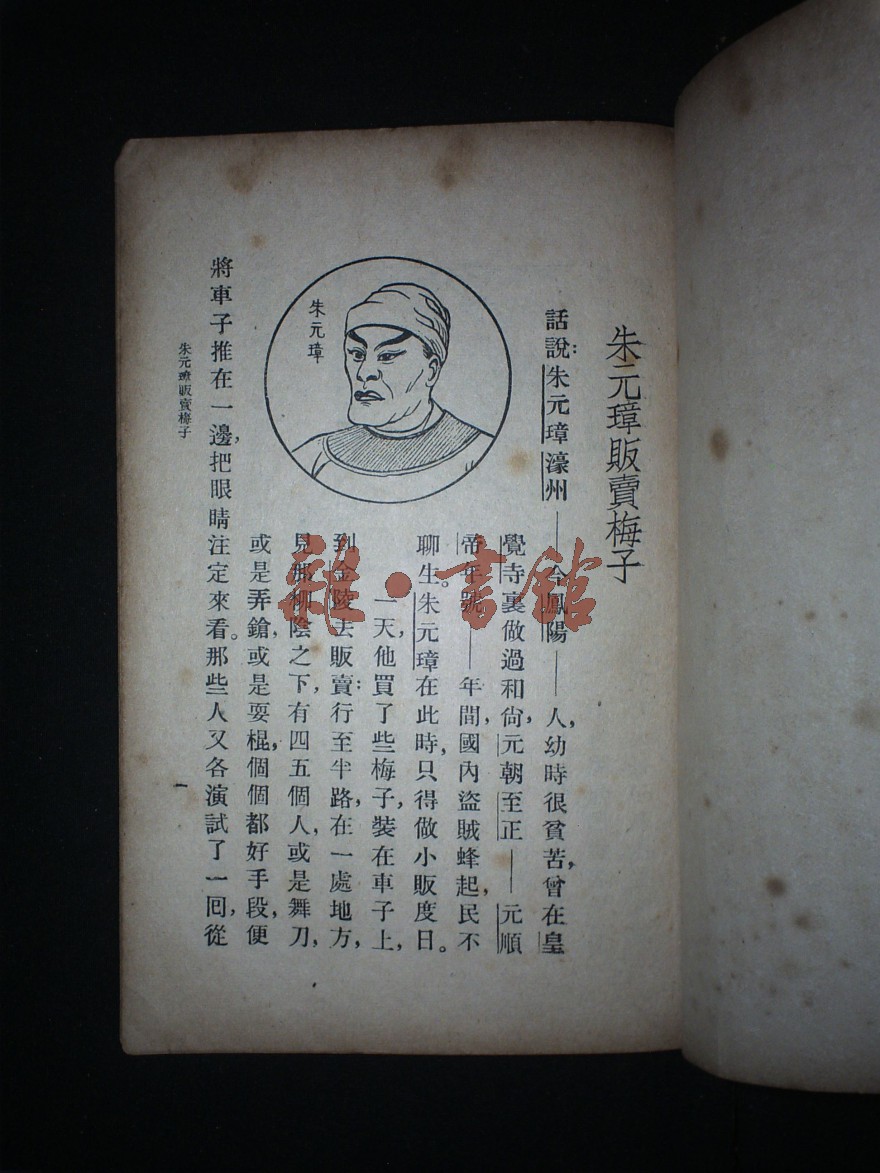 朱元璋販賣梅子
話說:朱元璋濠州——今鳳陽——人,幼時很貧苦,曾在皇
覺寺裏做過和尙,元朝至正——元順
帝年號——年間,國內盜賊蜂起,民不
聊生。朱元璋在此時,只得做小販度日。
一天,他買了些梅子,裝在車子上,
到金陵去販賣;行至半路,在一處地方,
見那柳陰之下,有四五個人,或是舞刀,
或是弄鎗,或是耍棍,個個都好手段,便
將車子推在一邊,把眼睛注定來看。那些人又各演試了一囘,從
朱元璋
朱元璋販賣梅子
一
龍·書館